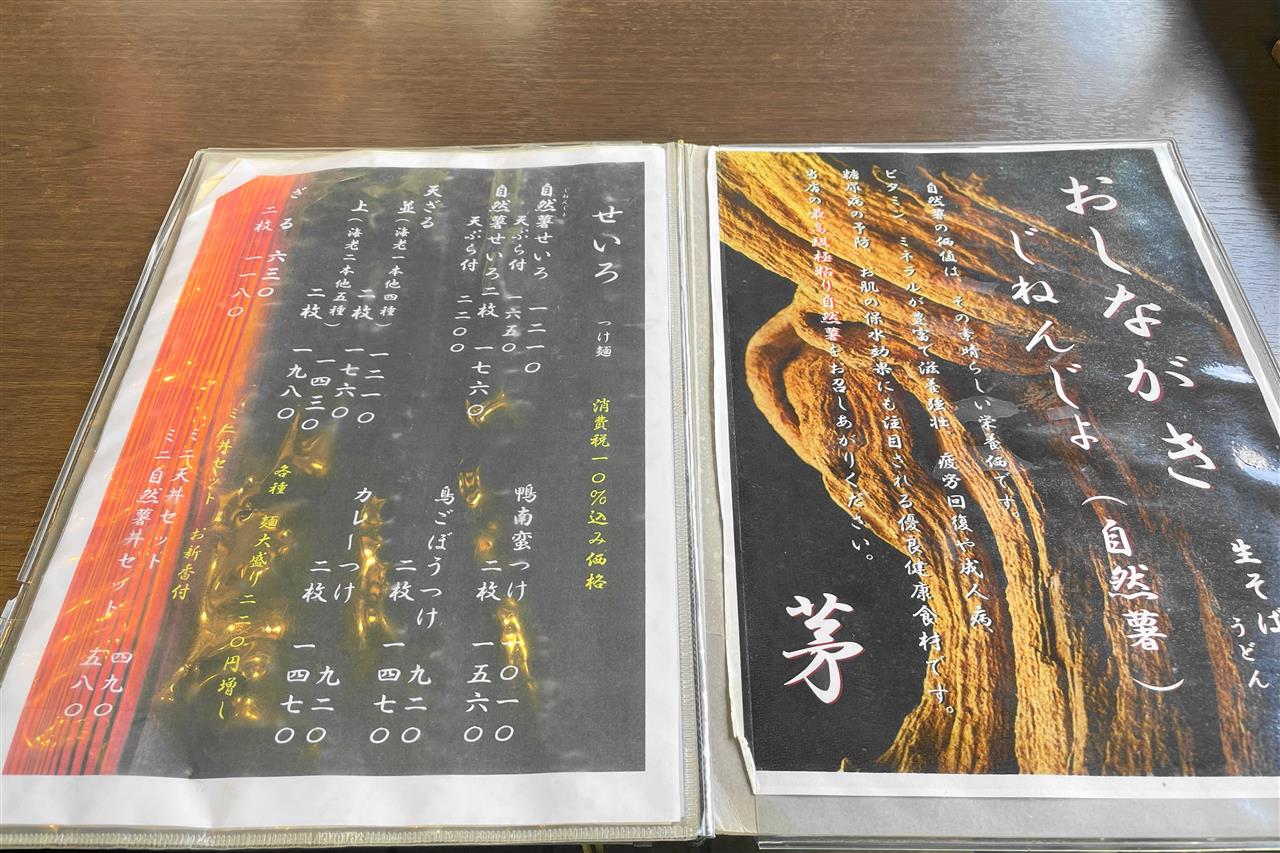 おしながき
生そば
うどん
じねんじょ（自然薯）
自然薯の価値は、その素晴らしい栄養価です。
ビタミン、ミネラルが豊富で滋養強壮、疲労回復や成人病、
糖尿病の予防、お肌の保水効果にも注目される優良健康食材です。
当店の最高級極粘り自然薯をお召しあがりください。
茅
せいろ つけ麺 消費税一〇％込み価格
じねんじょ
自然薯せいろ 一二一〇
天ぷら付 一六五〇
自然薯せいろ二枚 一七六〇
天ぷら付 二二〇〇
天ざる
並（海老一本他四種） 一二一〇
二枚 一七六〇
上（海老二本他五種） 一四三〇
二枚 一九八〇
ざる 六三〇
二枚 一一八〇
鴨南蛮つけ 一〇一〇
二枚 一五六〇
鳥ごぼうつけ 九二〇
二枚 一四七〇
カレーつけ 九二〇
二枚 一四七〇
各種 麺大盛り 二二〇円増し
ミニ丼セット お新香付
ミニ天丼セット 四九〇
ミニ自然薯丼セット 五八〇